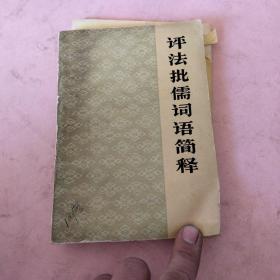 评法批儒词语简释